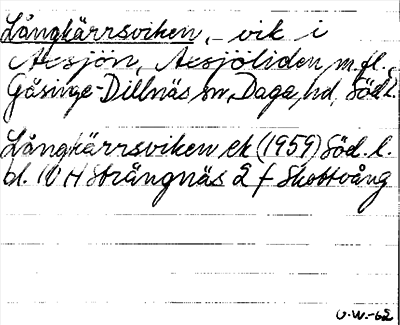 Långkärrsviken, - vik i
Acsjön, Acsjöliden m.fl.,
Gåsinge-Dillnäs sn, Daga hd, Södl.
Långkärrsviken ek (1959) Söd. l.
bl. 10 H Strängnäs 2 f Skottvång
U.W.-62